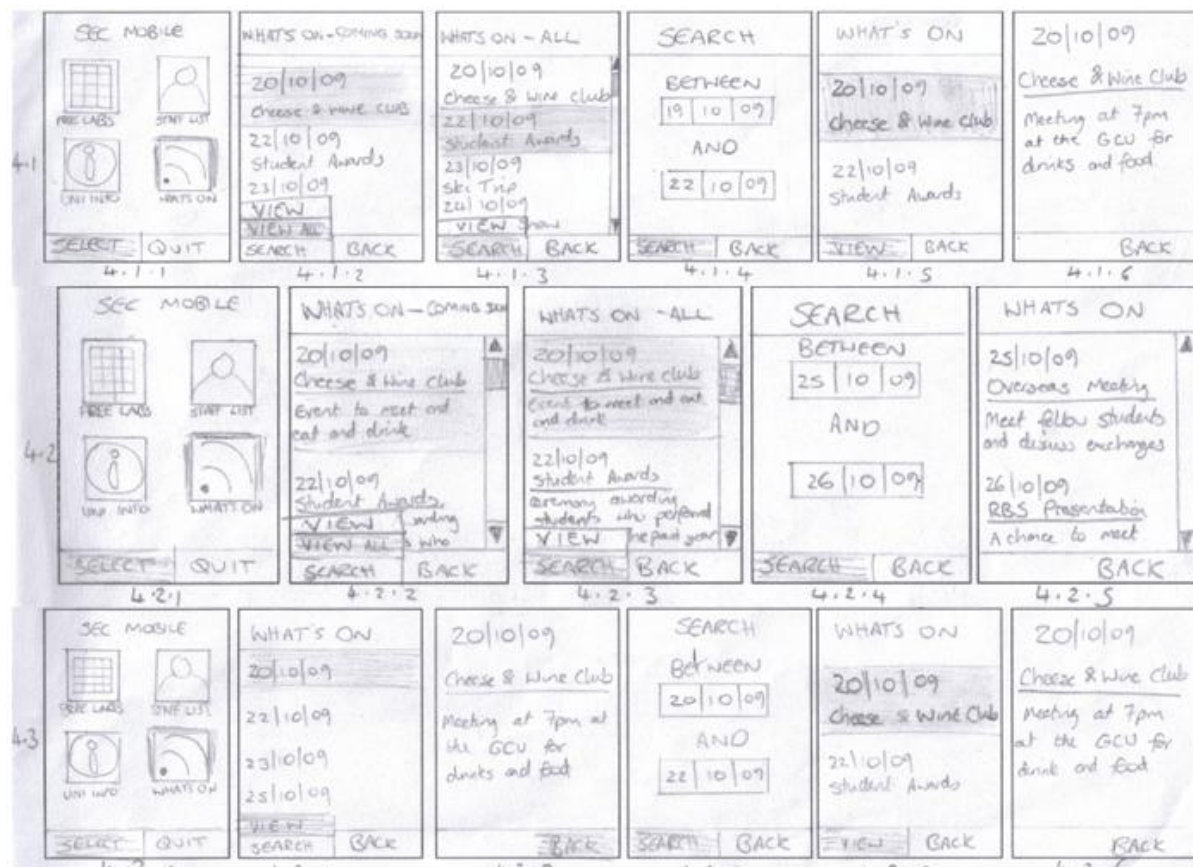 SEC MOBILE
FREE LABS
STAFF LIST
UNI INFO
WHATS ON
SELECT QUIT
4.1.1
WHATS ON - COMING SOON
20/10/09
Cheese & WINE CLUB
22/10/09
Student Awards
23/10/09
VIEW
VIEW ALL
SEARCH BACK
4.1.2
WHATS ON - ALL
20/10/09
Cheese & Wine Club
22/10/09
Student Awards
23/10/09
Ski Trip
24/10/09
VIEW Show
SEARCH BACK
4.1.3
SEARCH
BETWEEN
19 10 09
AND
22 10 09
SEARCH BACK
4.1.4
WHAT'S ON
20/10/09
Cheese & Wine Club
22/10/09
Student Awards
VIEW BACK
4.1.5
20/10/09
Cheese & Wine Club
Meeting at 7pm
at the GCU for
drinks and food
BACK
4.1.6
4.1
SEC MOBILE
FREE LABS
STAFF LIST
UNI INFO
WHATS ON
SELECT QUIT
4.2.1
WHATS ON - COMING SOON
20/10/09
Cheese & Wine Club
Event to meet and
eat and drink
22/10/09
Student Awards
VIEW
VIEW ALL who
SEARCH BACK
4.2.2
WHATS ON - ALL
20/10/09
Cheese & Wine Club
Event to meet and eat
and drink
22/10/09
Student Awards
Ceremony awarding
students who
VIEW the past year
SEARCH BACK
4.2.3
SEARCH
BETWEEN
25 10 09
AND
26 10 09
SEARCH BACK
4.2.4
WHATS ON
25/10/09
Overseas Meeting
Meet fellow students
and discuss exchanges
26/10/09
RBS Presentation
A chance to meet
BACK
4.2.5
4.2
SEC MOBILE
FREE LABS
UNI INFO
WHATS ON
SELECT QUIT
WHAT'S ON
20/10/09
22/10/09
23/10/09
25/10/09
VIEW
SEARCH BACK
20/10/09
Cheese & Wine Club
Meeting at 7pm at
the GCU for
drinks and food
BACK
SEARCH
BETWEEN
20 10 09
AND
22 10 09
SEARCH BACK
WHATS ON
20/10/09
Cheese & Wine Club
22/10/09
Student Awards
VIEW BACK
20/10/09
Cheese & Wine Club
Meeting at 7pm
at the GCU for
drink and food
BACK
4.3